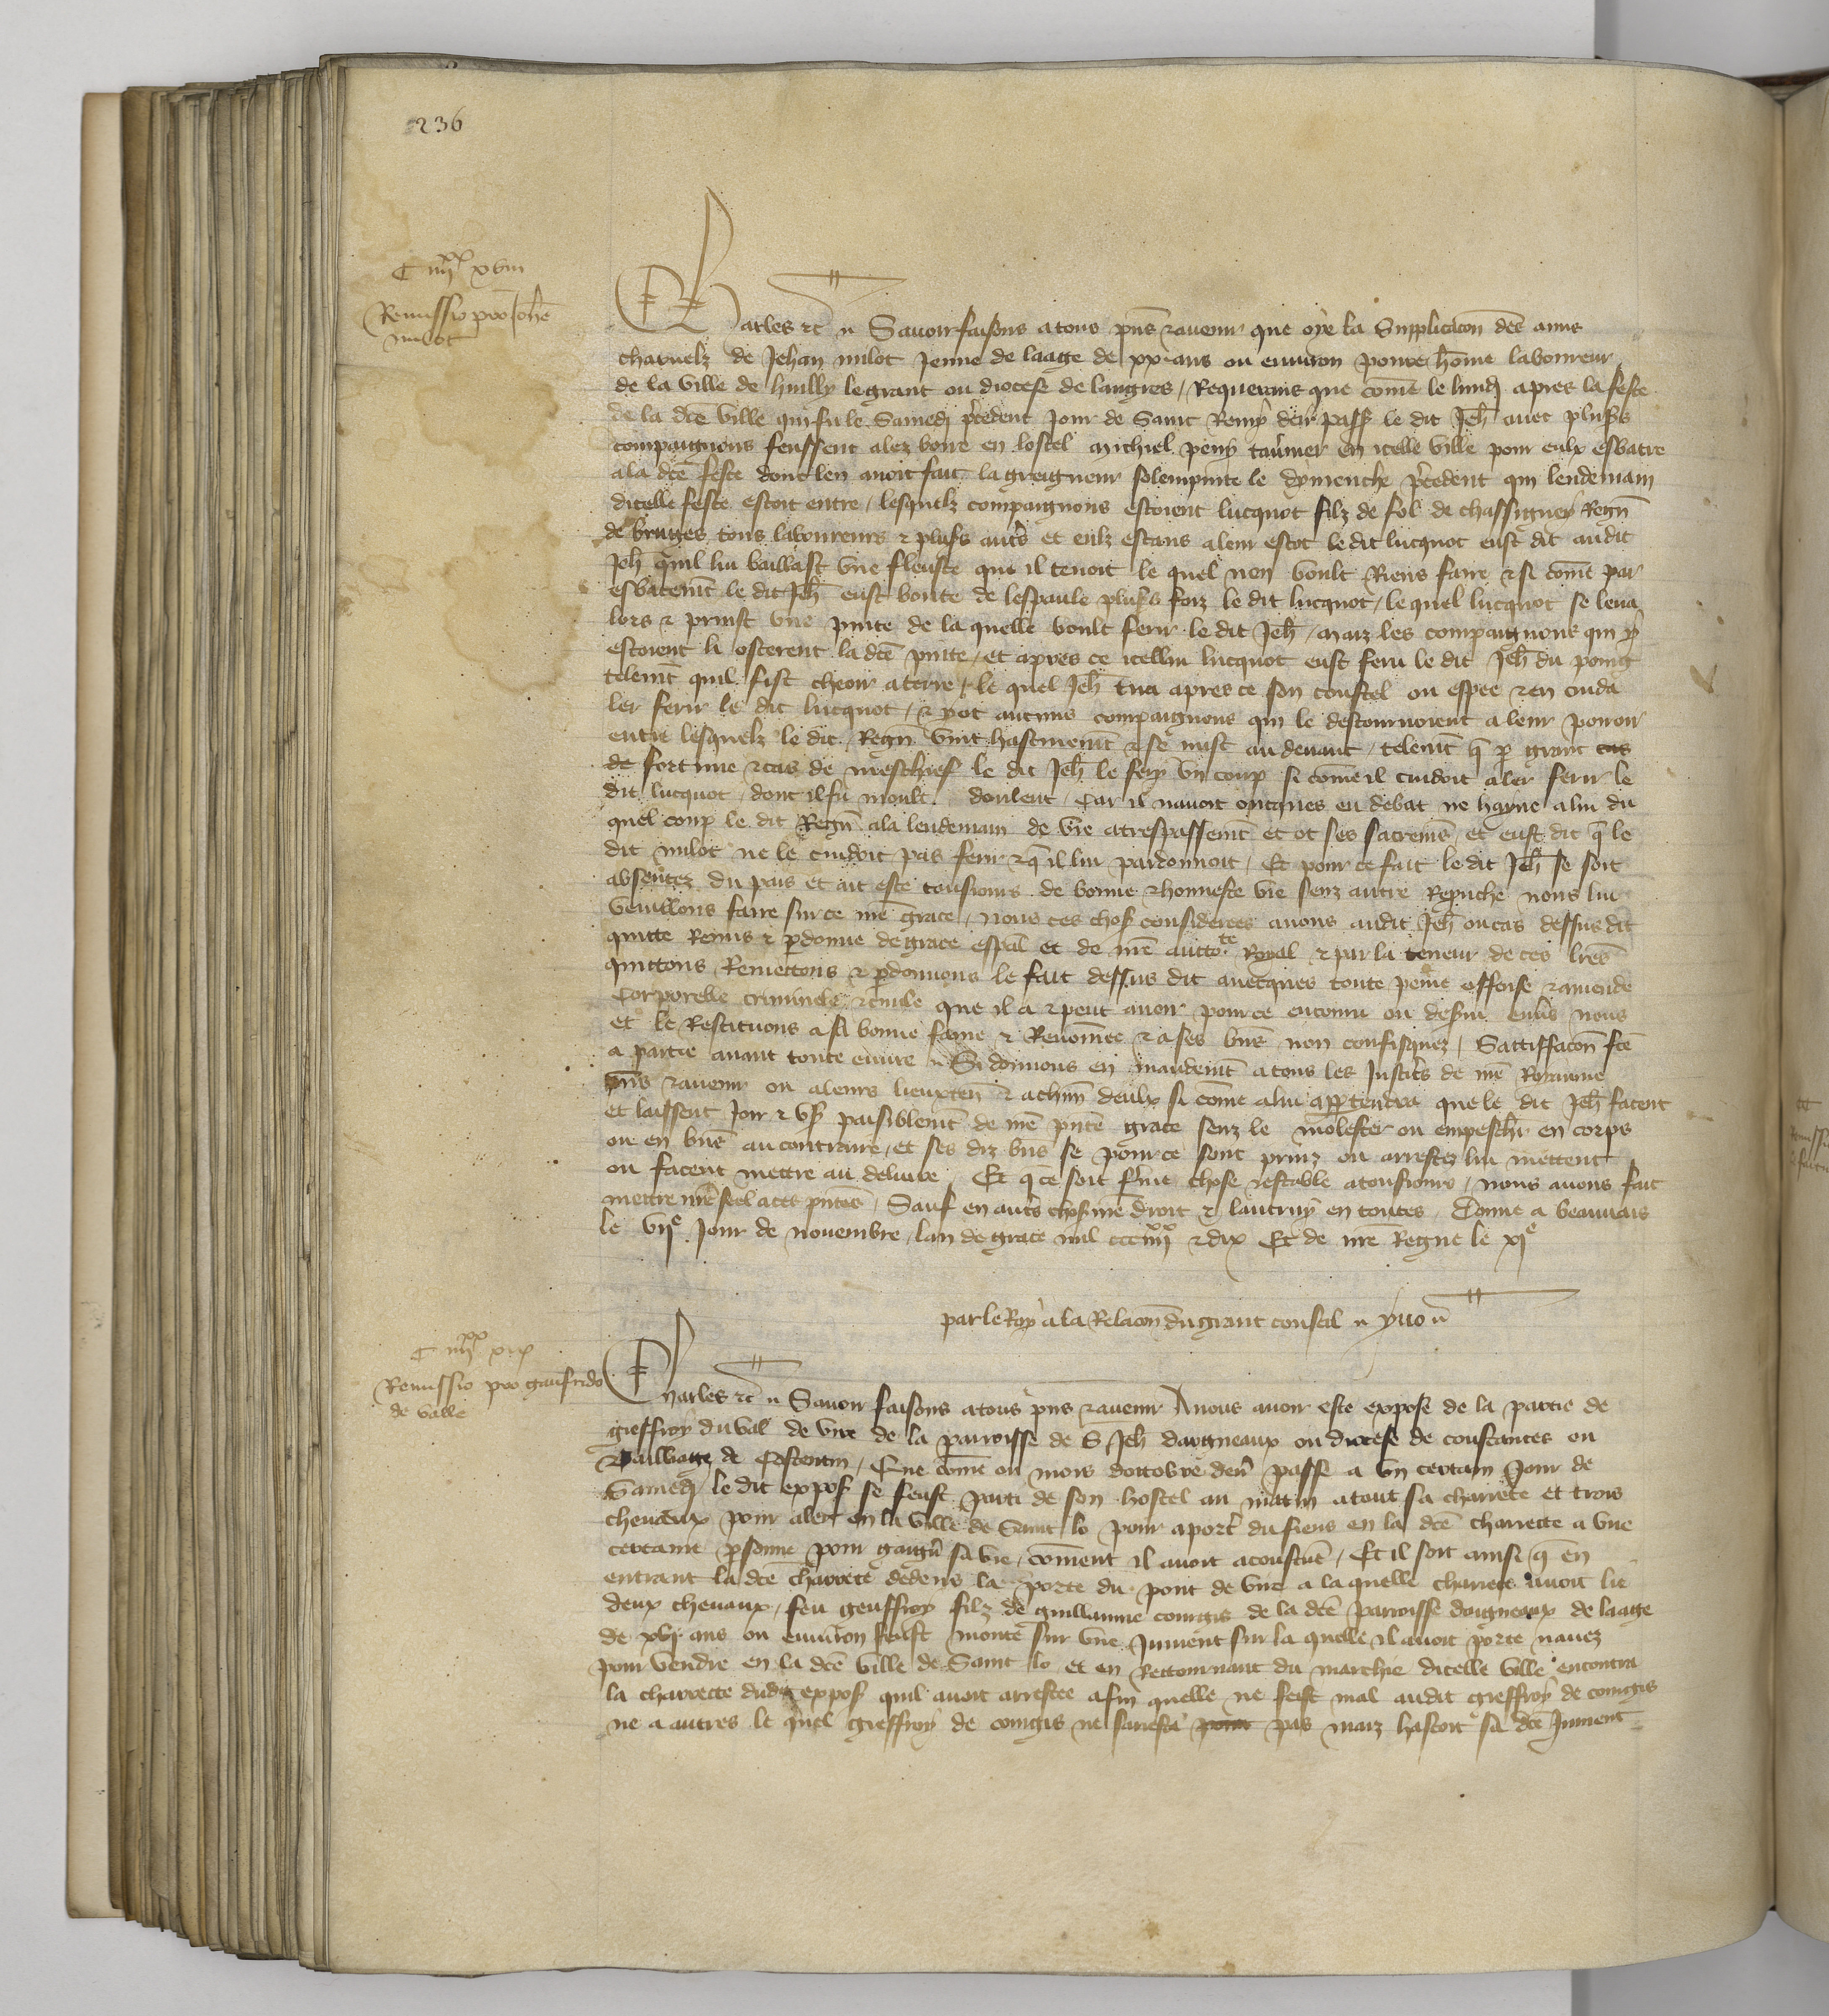 236
C IIIIxx XVIII
Remissio pro Johe
milot
Charles etc Savoir faisons a tous pns et avenir que oye la Supplicacon des amis
charnelz de Jehan milot Jenne de laage de xx ans ou environ povre home laboureur
de la ville de huilly le grant ou diocese de langres / Requerans que come le lundj apres la feste
de la dce ville qui fu le Samedj precedent Jour de Saint Remy derr passe le dit Jeh avec pluss
compaignons feussent alez boire en lostel michiel peny tavernier en icelle ville pour eulx esbatre
a la dce feste dont len avoit fait la greigneur solempnite le dymenche precedent qui lendemain
dicelle feste estoit entre / lesquelz compaignons estoient lucquot filz de fol de chassigney Regn
de bruges tous laboureurs et pluss autrs et eulz estans a leur escot le dit lucquot eust dit audit
Jeh quil lui baillast une fleuste que il tenoit le quel nen voult Riens faire et si come par
esbatemt le dit Jeh eust boute de lespaule pluss foiz le dit lucquot / le quel lucquot se leva
lors et prinst une pinte de la quelle voult ferir le dit Jeh / maiz les compaignons qui y
estoient li osterent la dce pinte / et apres ce icellui lucquot eust feru le dit Jeh du poing
telemt quil fist cheoir a terre / le quel Jeh tira apres ce son coustel ou espee et en cuida
ler ferir le dit lucquot / et y ot aucuns compaignons qui le destournoient a leur povoir
entre lesquelz le dit Regn vint hastivemt et se mist au devant / telemt q p grant cas
de fortune et cas de meschief le dit Jeh le fery un coup si come il cuidoit aler ferir le
dit lucquot / dont il fu moult doulent / Car il navoit oncques eu debat ne hayne a lui du
quel coup le dit Regn ala lendemain de vie a trespassemt et ot ses sacremes / et eust dit q le
dit milot ne le cuidoit pas ferir et q il lui pardonnoit / Et pour ce fait le dit Jeh se soit
absentez du pais et ait este tousjours de bonne et honneste vie senz autre Reprouche nous lui
veuillons faire sur ce nre grace / nous ces choses considerees avons audit Jeh ou cas dessus dit
quitte Remis et pdonne de grace espal et de nre auctorite Royal et par la teneur de ces lres
quittons Remettons et pdonnons le fait dessus dit avecques toute peine offense et amende
Corporelle criminele et civile que il a et peut avoir pour ce encouru ou desservi envs nous
et le Restituons a sa bonne fame et Renomee et a ses bns non confisquez / Sattiffacon fce
a partie avant toute euvre Si donnons en mandemt a tous les Justiciers de nre Royaume
pns et avenir ou a leurs lieuxten et a chun deulx si come a lui appartendra que le dit Jeh facent
et laissent Joir et usr paisiblemt de nre pnte grace senz le molester ou empeschr en corps
ou en bns au contraire / et ses diz bns se pour ce sont prinz ou arrestez lui mettent
ou facent mettre au delivre / Et q ce soit ferme chose et estable a tousjours / nous avons fait
mettre nre seel a ces pntes / Sauf en autrs choses nre droit et lautruy en toutes / Donne a beauvais
le vije Jour de novembre / lan de grace mil ccc iiijxx et dix Et de nre Regne le xje
par le Roy a la Relacon du grant conseil yvo
C IIIIxx XIX
Remissio pro gaufrido
de valle
Charles etc Savoir faisons a tous pns et avenir A nous avoir este expose de la partie de
gieffroy du val de vire de la parroisse de S Jeh daigneaux ou diocese de coustances ou
Bailliage de Costentin / Que come ou mois doctobre derr passe a un certain Jour de
Samedj le dit expos se feust parti de son hostel au matin a tout sa charrete et trois
chevaux pour aler en la ville de Saint lo pour aportr du fiens en la dce charrette a une
certaine psonne pour gaignr sa vie / coment il avoit acoustume / Et il soit ainsi q en
entrant la dce charrete dedens la porte du pont de vire a la quelle charrete avoit lie
deux chevaux / feu geuffroy filz de guillaume comgis de la dce parroisse daigneaux de laage
de xvj ans ou environ feust monte sur une Jument sur la quelle il avoit porte navez
pour vendre en la dce ville de Saint lo et en Rettournant du marchie dicelle ville encontra
la charrecte dudit expos quil avoit arrestee afin quelle ne feist mal audit gieffroy de comgis
ne a autres le quel gieffroy de comgis ne saresta point pas maiz hastoit sa dce Jument